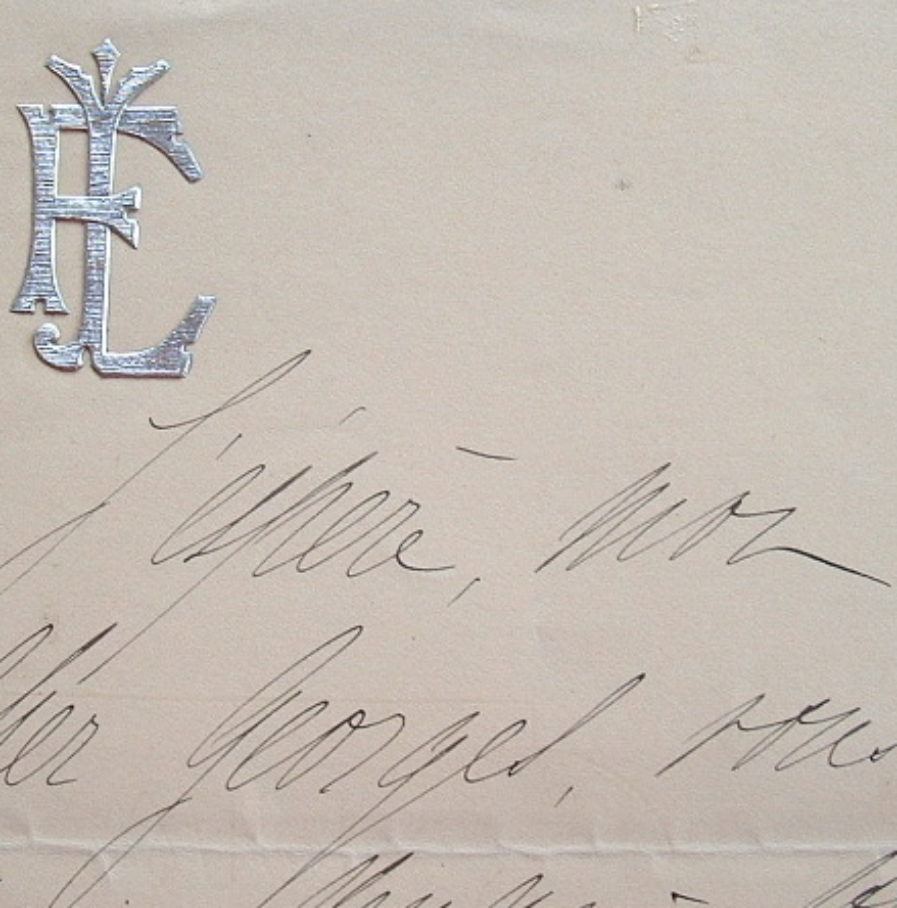 J'espère, mon
cher Georges, vous